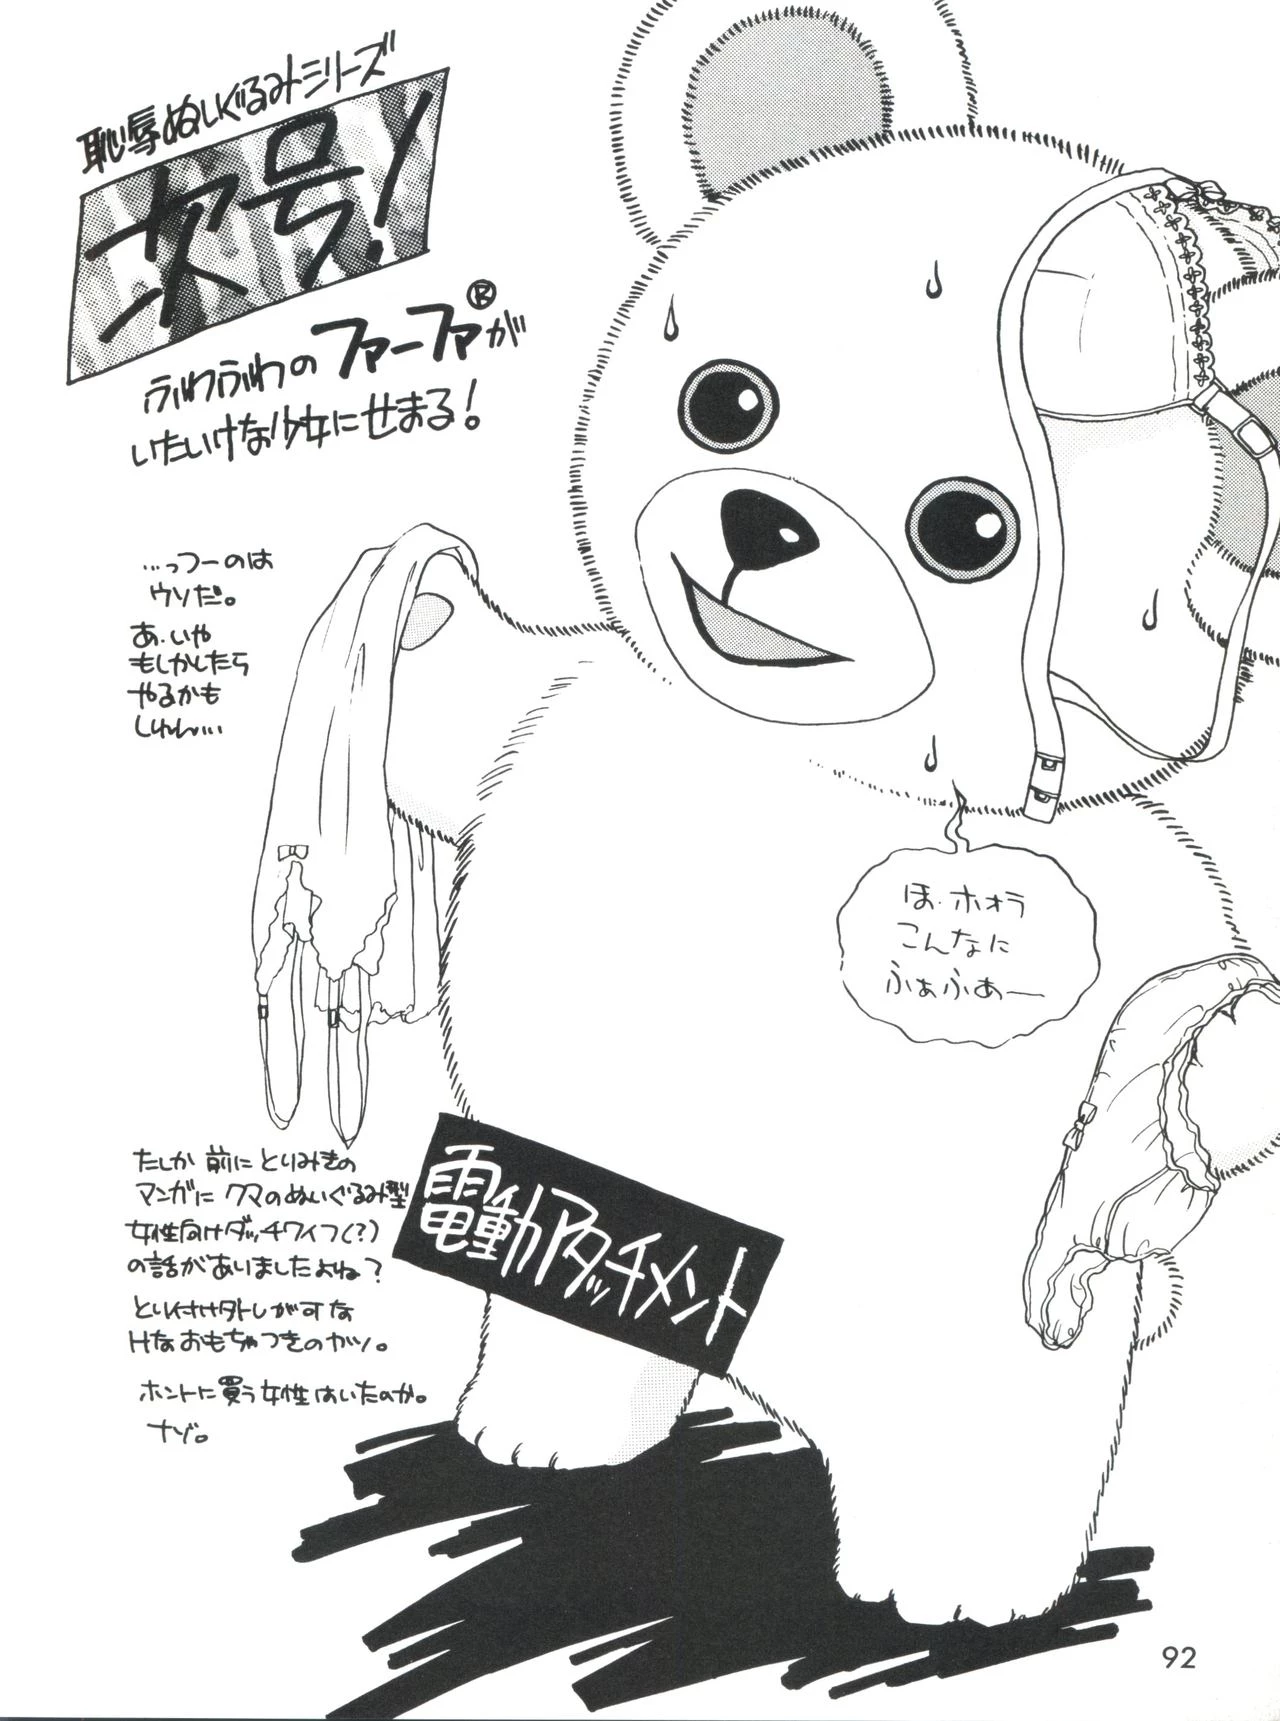 恥辱ぬいぐるみシリーズ
次号!
ふわふわのファーファ®が
いたいけな少女にせまる!
…っつーのは
ウソだ。
あ、いや
もしかしたら
やるかも
しれん…
ほ、ホォラ
こんなに
ふぁふぁー
電動アタッチメント
たしか前にとりみきの
マンガにクマのぬいぐるみ型
女性向けダッチワイフ(?)
の話がありましたよね?
とり付け外しが可な
Hなおもちゃつきのヤツ。
ホントに買う女性はいたのか。
ナゾ。
92